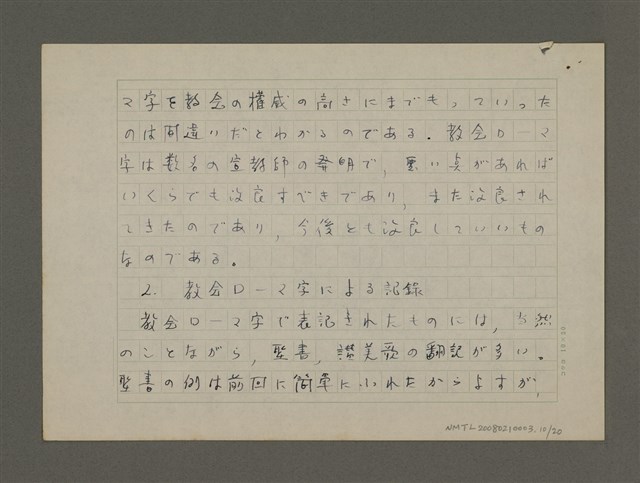 マ字を教会の権威の高さにまでもっていった
のは間違いだとわかるのである。教会ローマ
字は数名の宣教師の発明で，悪い点があれば
いくらでも改良すべきであり，また改良され
てきたのであり，今後とも改良していいもの
なのである。
2. 教会ローマ字による記録
教会ローマ字で表記されたものには，当然
のことながら，聖書，讃美歌の翻記が多い。
聖書の例は前回に簡単にふれたからよすが，
NMTL20080210003.10/20